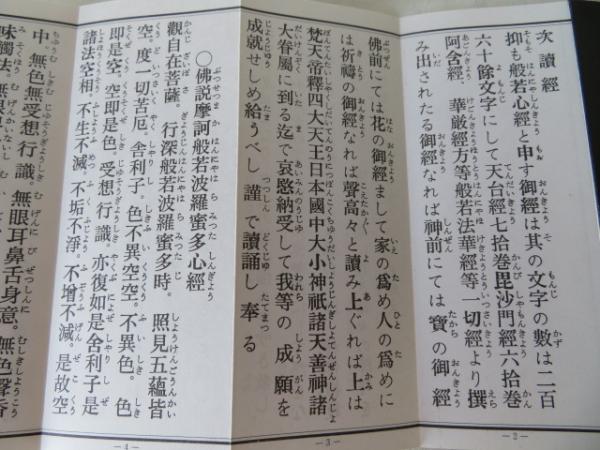 次讀經
抑も般若心經と申す御經は其の文字の數は二百
六十餘文字にして天台經七拾巻毘沙門經六拾巻
阿含經華厳經方等般若法華經等一切經より撰
み出されたる御經なれば神前にては寳の御經
—2—
佛前にては花の御經まして家の爲め人の爲めに
は祈禱の御經なれば聲高々と讀み上ぐれば上は
梵天帝釋四大天王日本國中大小神祇諸天善神諸
大眷屬に到る迄で哀愍納受して我等の成願を
成就せしめ給うべし謹で讀誦し奉る
—3—
〇佛説摩訶般若波羅蜜多心經
觀自在菩薩。行深般若波羅蜜多時。照見五蘊皆
空。度一切苦厄。舎利子。色不異空空。不異色。色
即是空。空即是色。受想行識。亦復如是舎利子是
諸法空相。不生不滅。不垢不淨。不增不減。是故空
—4—
中。無色無受想行識。無眼耳鼻舌身意。無色聲香
味觸法。無眼